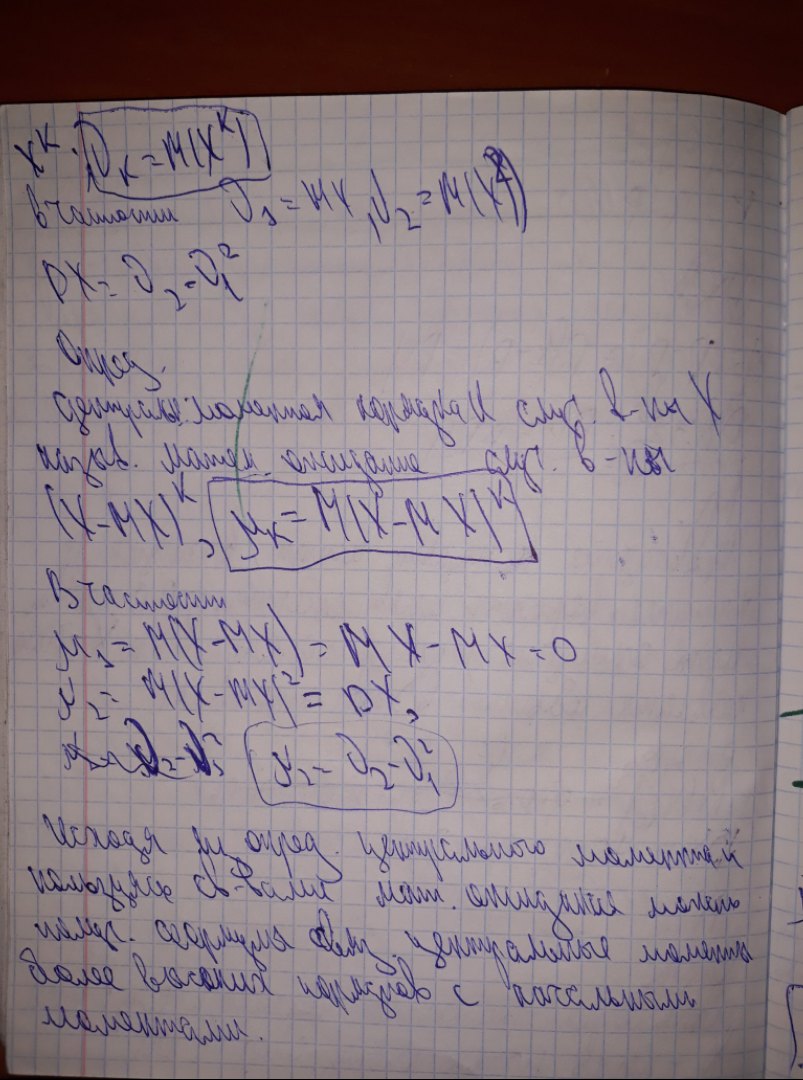 X^K. ν_K = M(X^K)
В частности ν_1 = MX, ν_2 = M(X^2)
DX = ν_2 - ν_1^2
Опред.
моментом порядка K случ. в-ны X
назыв. матем. ожидание случ. в-ны
(X-MX)^K, μ_K = M(X-MX)^K
В частности
μ_1 = M(X-MX) = MX - MX = 0
μ_2 = M(X-MX)^2 = DX,
μ_2 = ν_2 - ν_1^2
Исходя из опред. центрального момента и
пользуясь св-вами мат. ожидания можно
получ. формулы связ. центральные моменты
более высоких порядков с начальными
моментами.